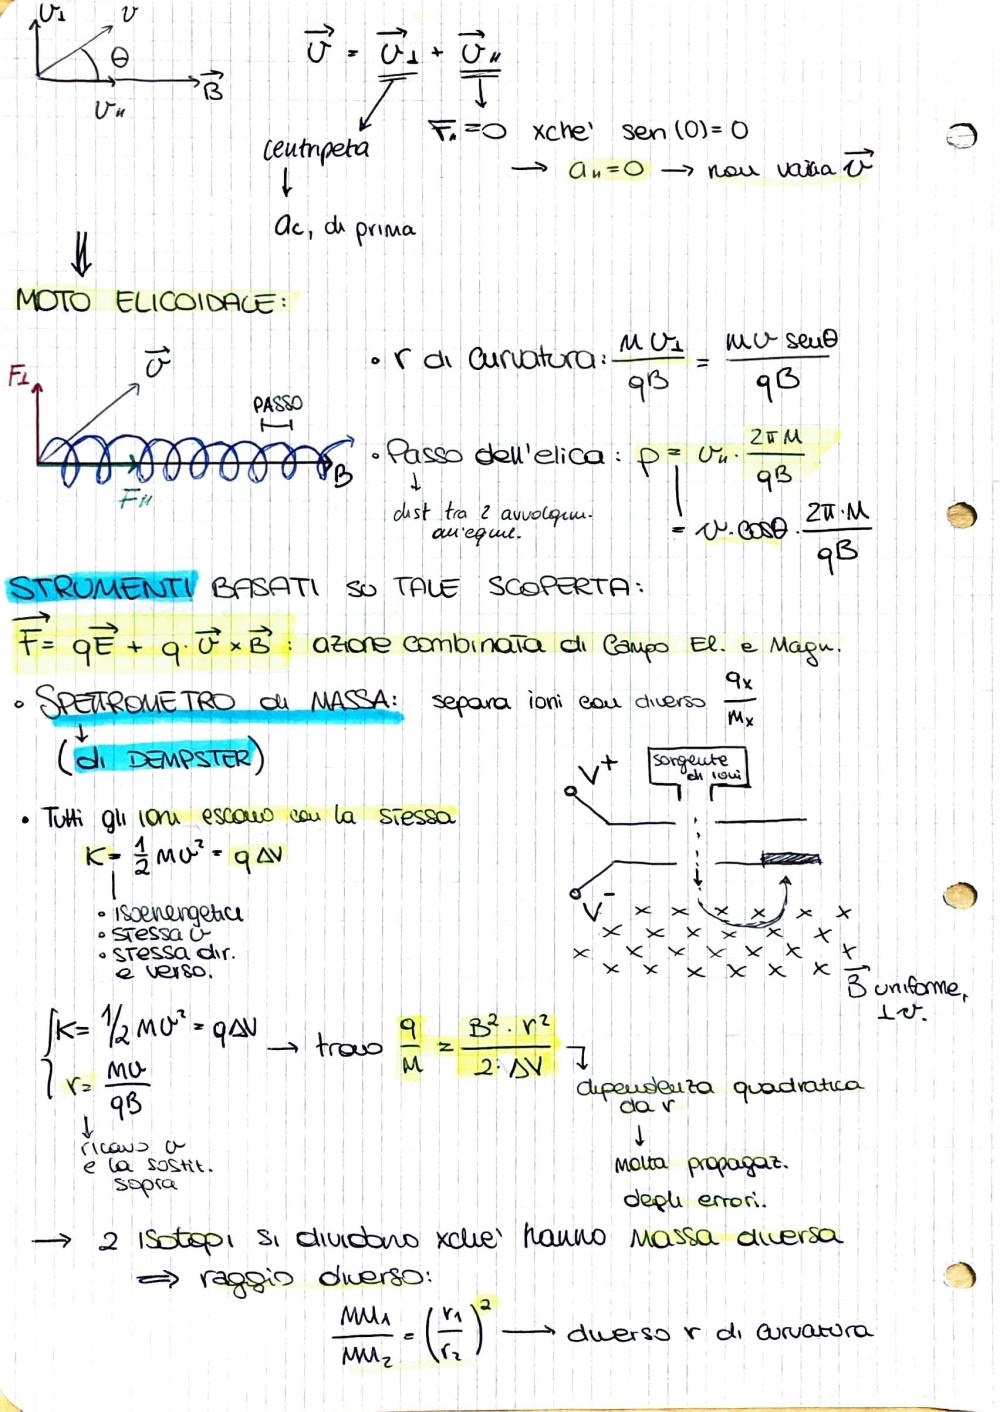 v⊥ v
θ
B⃗
v∥
v⃗ = v⃗⊥ + v⃗∥
centripeta
↓
ac, di prima
F∥=0 xchè sen(0)=0
→ a∥=0 → non varia v⃗
⇓
MOTO ELICOIDALE:
F⊥ v⃗
PASSO
B
F∥
• r di curvatura: mv⊥/qB = mv senθ/qB
• Passo dell'elica: p = v∥ · 2πm/qB
↓
dist tra 2 avvolgim.
= v·cosθ · 2π·m/qB
STRUMENTI BASATI SU TALE SCOPERTA:
F⃗= qE⃗ + q·v⃗×B⃗ : azione combinata di Campo El. e Magn.
• SPETTROMETRO di MASSA: separa ioni con diverso qx/mx
↓
(di DEMPSTER)
V+
sorgente
di ioni
V-
• Tutti gli ioni escono con la stessa
K= 1/2 mv² = qΔV
• isoenergetici
• stessa v
• stessa dir.
e verso.
B⃗ uniforme,
⊥v.
{K= 1/2 mv² = qΔV
r= mv/qB
→ trovo q/m = B²·r²/2·ΔV
↓
ricavo v
e la sostit.
sopra
dipendenza quadratica
da r
↓
molta propagaz.
degli errori.
→ 2 isotopi si dividono xchè hanno massa diversa
⇒ raggio diverso:
mm1/mm2 = (r1/r2)² → diverso r di curvatura